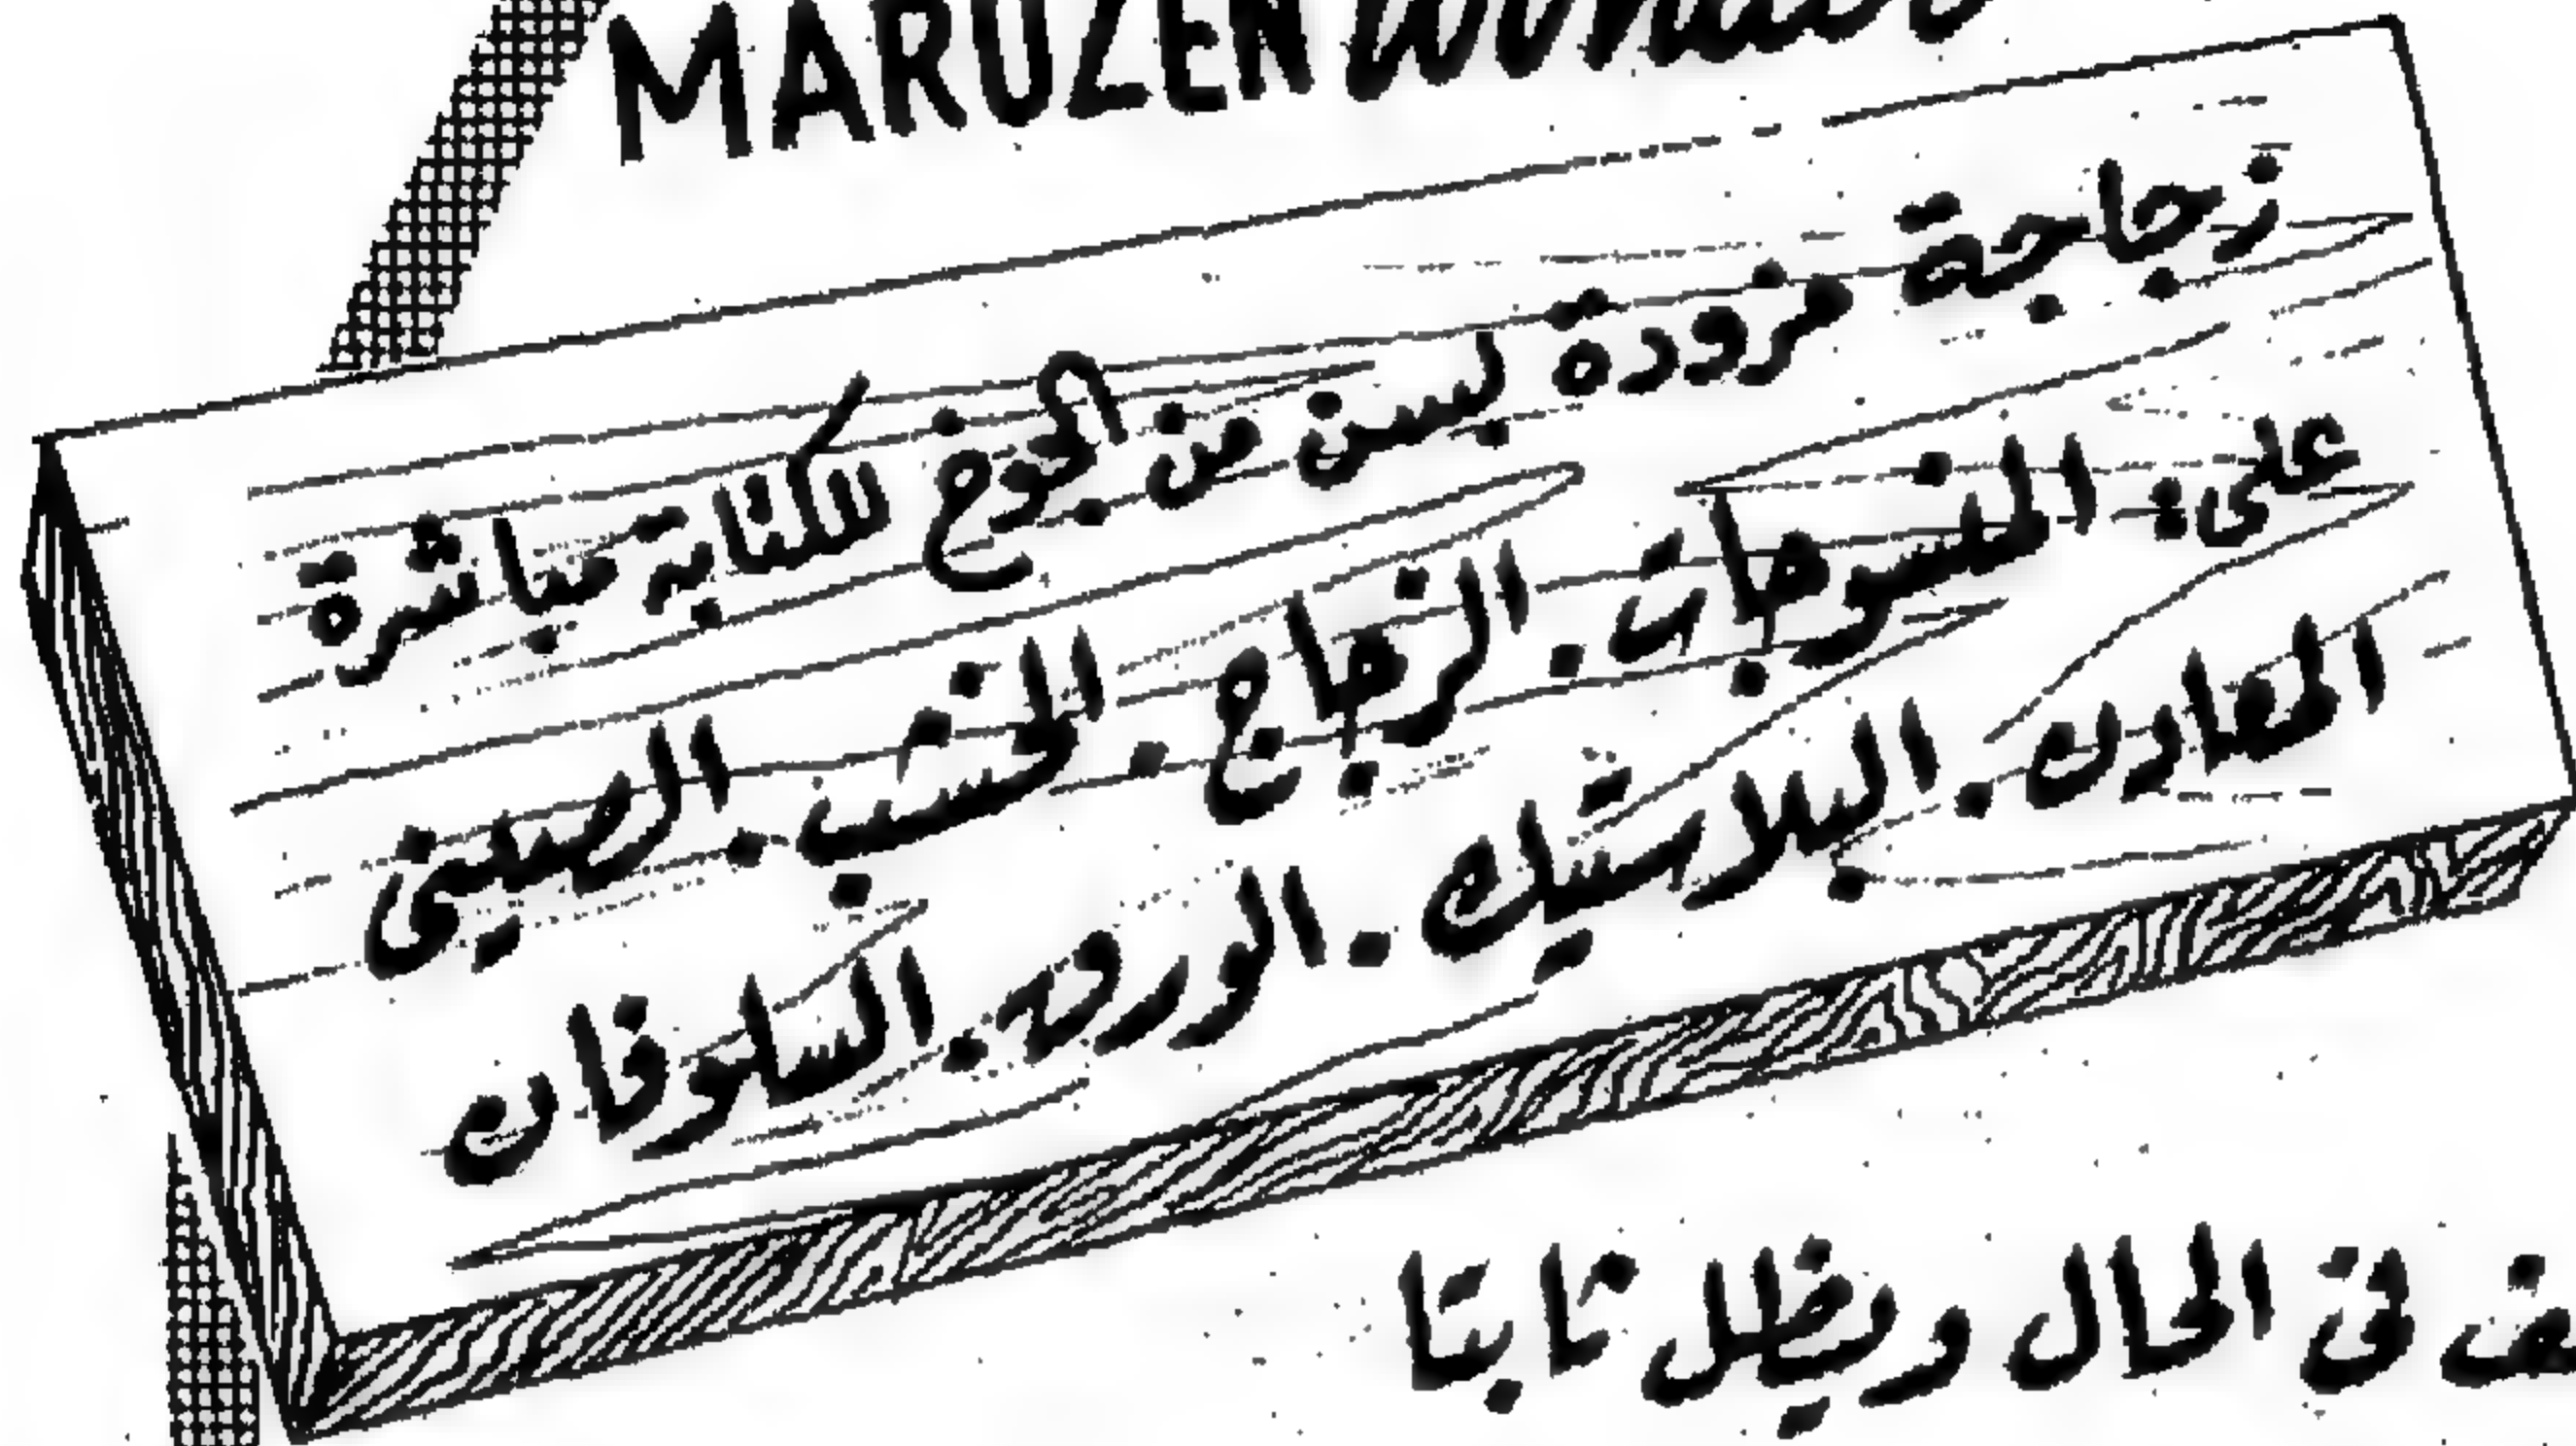 MARUZEN
زجاجة مزودة بسن من الجوخ للكتابة مباشرة
على: المنسوجات. الزجاج. الخشب. الصينى
المعادن. البلاستيك. الورق. السلوفان
فى الحال ويظل ثابتا